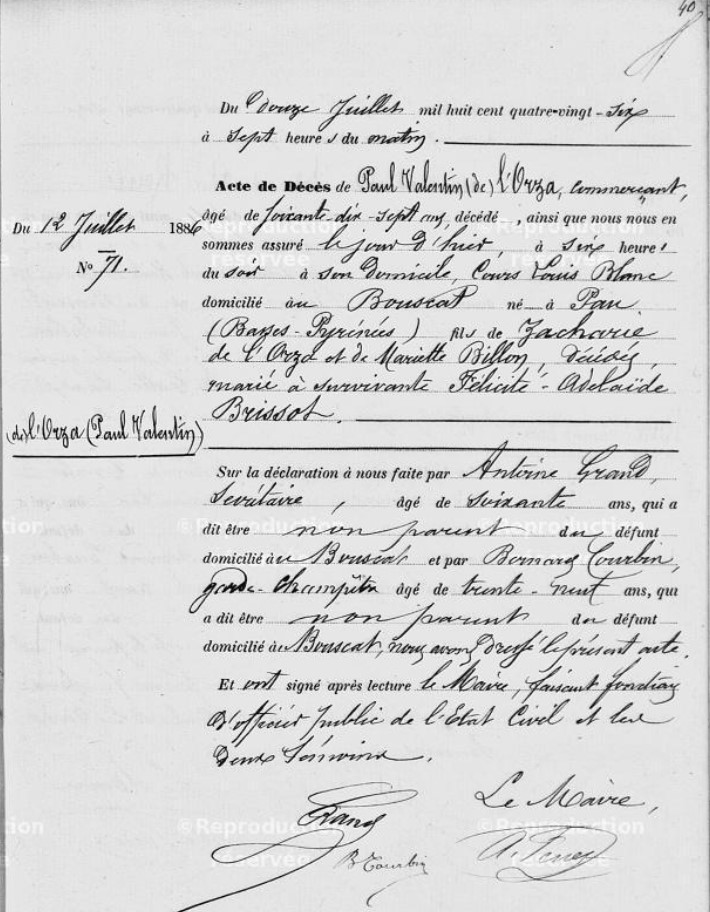 40
Du douze Juillet mil huit cent quatre-vingt-six
à sept heures du matin.
Acte de Décès de Paul Valentin (de) l'Orza, commerçant,
Du 12 Juillet 1886
âgé de soixante-dix-sept ans, décédé, ainsi que nous nous en
sommes assuré le jour d'hier, à six heures
N° 71.
du soir à son Domicile, Cours Louis Blanc
domicilié au Bouscat né à Pau
(Basses-Pyrénées) fils de Zacharie
de l'Orza et de Mariette Billon, décédés,
marié à survivante Félicité-Adelaïde
Brissot.
(de) l'Orza (Paul Valentin)
Sur la déclaration à nous faite par Antoine Grand,
Secrétaire, âgé de soixante ans, qui a
dit être non parent du défunt
domicilié au Bouscat et par Bernard Courbin,
garde-champêtre âgé de trente-neuf ans, qui
a dit être non parent du défunt
domicilié au Bouscat, nous avons dressé le présent acte.
Et ont signé après lecture le Maire, faisant fonctions
d'officier public de l'Etat Civil et les
deux témoins.
Le Maire,
Grand
B Courbin
©Reproduction réservée